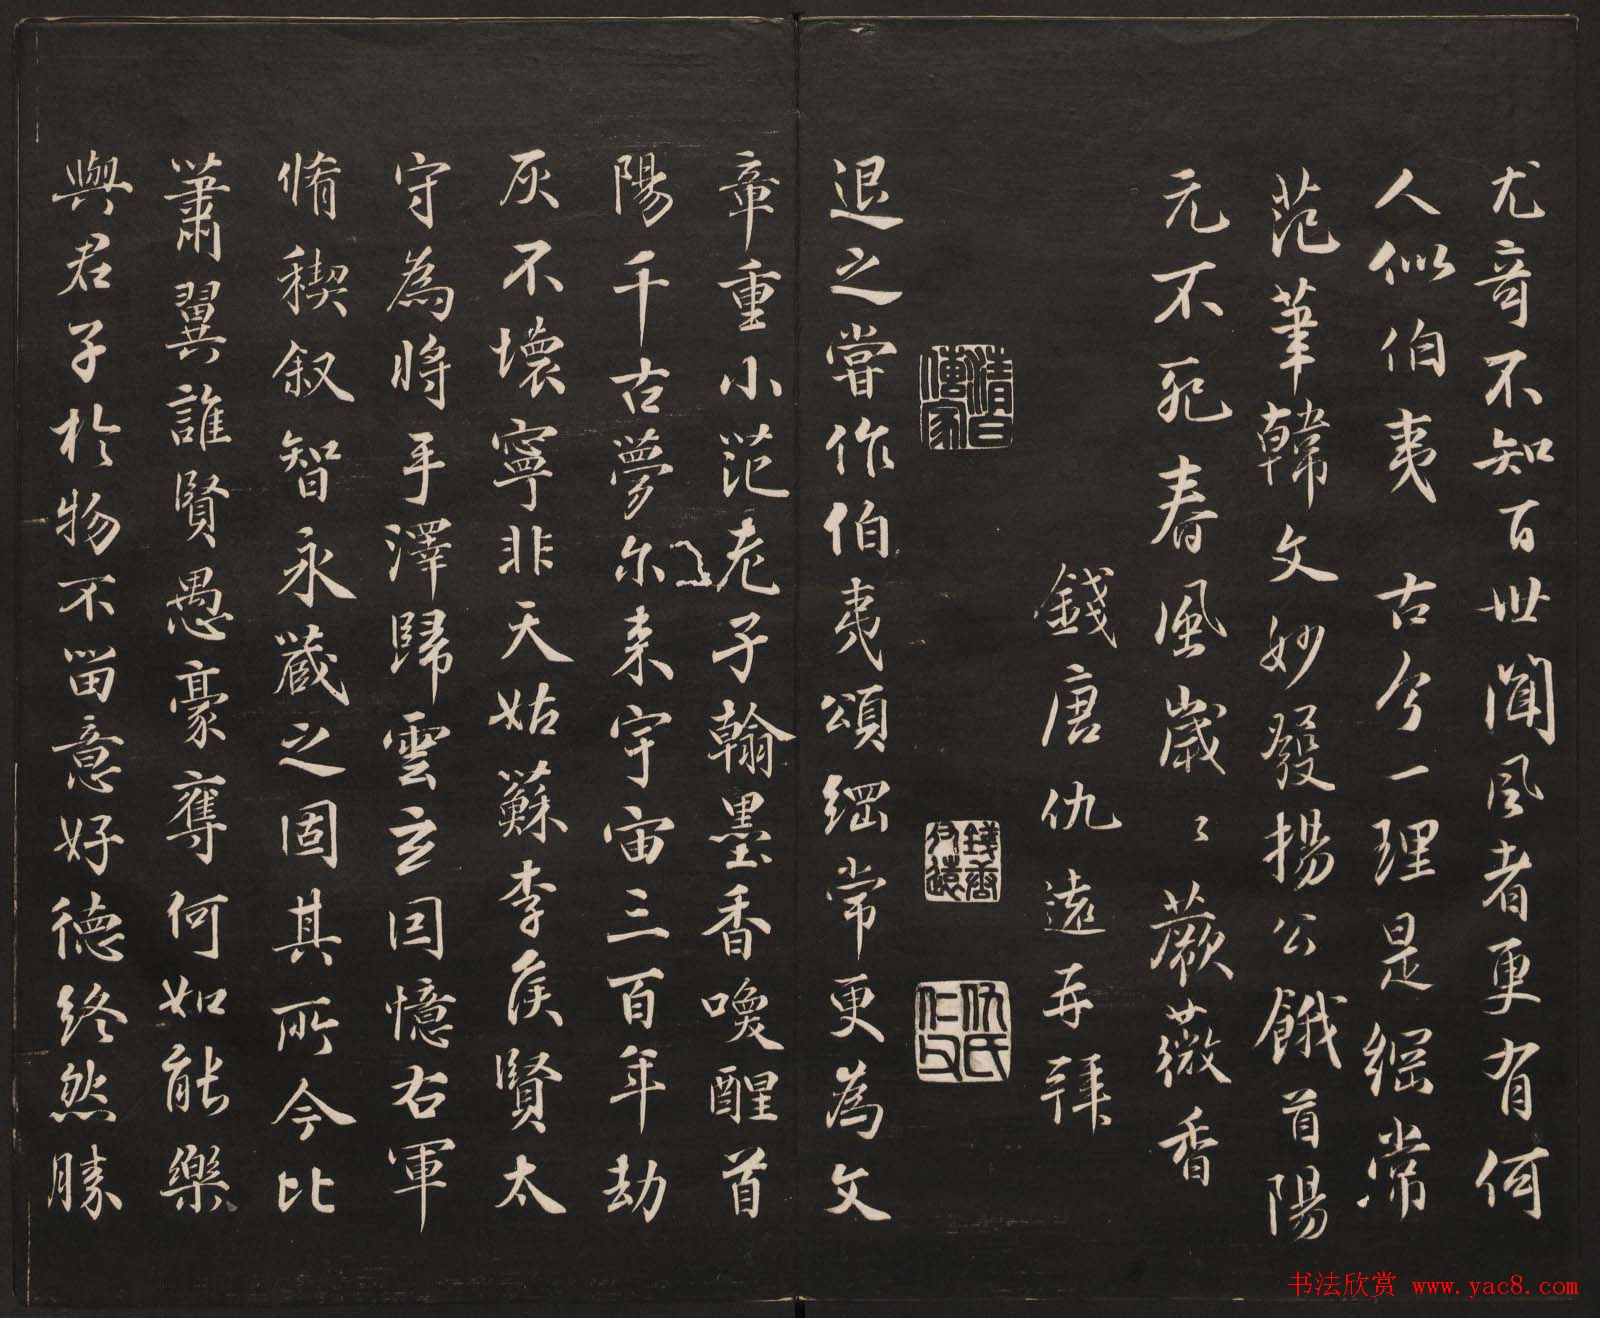 尤奇不知百世聞風者更有何
人似伯夷 古今一理是綱常
范筆韓文妙發揚公餓首陽
元不死春風歲〻蕨薇香
錢唐仇遠再拜
清白
傳家
錢唐
仇遠
仇氏
仁父
退之嘗作伯夷頌綱常更為文
章重小范老子翰墨香喚醒首
陽千古夢尔来宇宙三百年劫
灰不壞寧非天姑蘇李侯賢太
守為將手澤歸雲玄因憶右軍
脩禊叙智永藏之固其所今比
蕭翼誰賢愚豪奪何如能樂
與君子於物不留意好德終然勝
书法欣赏 www.yac8.com